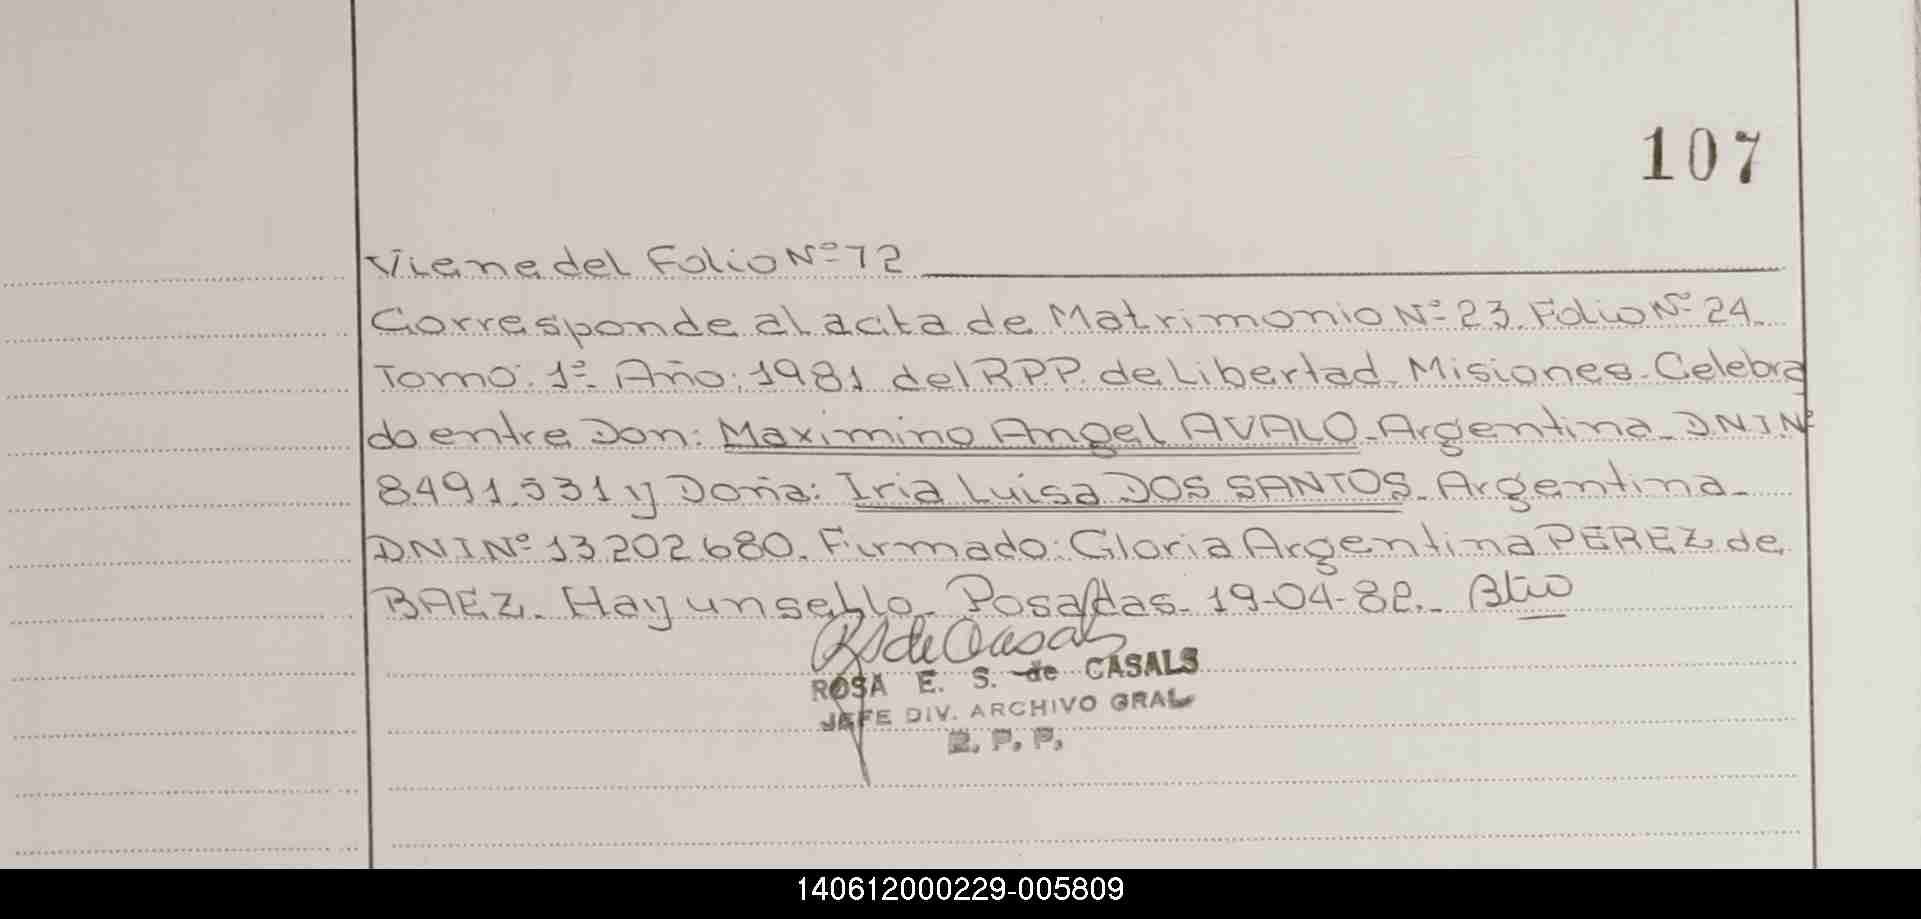 107
Viene del Folio Nº 72
Corresponde al acta de Matrimonio Nº 23. Folio Nº 24.
Tomo: 1º. Año: 1981 del R.P.P. de Libertad. Misiones. Celebra
do entre Don: Maximino Angel AVALO. Argentina. D.N.I Nº
8.491.531 y Doña: Iria Luisa DOS SANTOS. Argentina.
D.N.I Nº 13.202.680. Firmado: Gloria Argentina PEREZ de
BAEZ. Hay un sello. Posadas. 19-04-82.
RS de Casals
ROSA E. S. de CASALS
JEFE DIV. ARCHIVO GRAL
R. P. P.
140612000229-005809